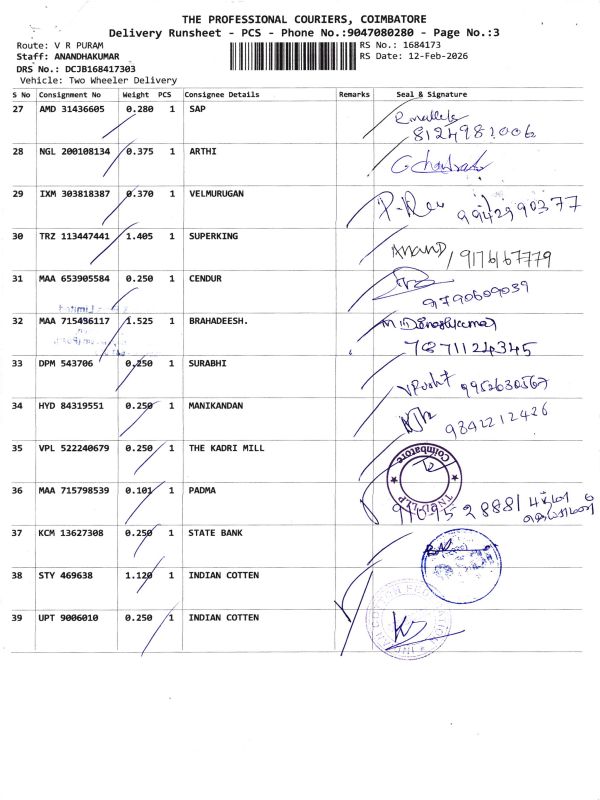 THE PROFESSIONAL COURIERS, COIMBATORE
Delivery Runsheet - PCS - Phone No.:9047080280 - Page No.:3
Route: V R PURAM RS No.: 1684173
Staff: ANANDHAKUMAR RS Date: 12-Feb-2026
DRS No.: DCJB168417303
Vehicle: Two Wheeler Delivery
S No Consignment No Weight PCS Consignee Details Remarks Seal & Signature
27 AMD 31436605 0.280 1 SAP
8124981006
28 NGL 200108134 0.375 1 ARTHI
29 IXM 303818387 0.370 1 VELMURUGAN
9942990377
30 TRZ 113447441 1.405 1 SUPERKING Anand / 9176167779
31 MAA 653905584 0.250 1 CENDUR
9790609039
32 MAA 715436117 1.525 1 BRAHADEESH.
7871124345
33 DPM 543706 0.250 1 SURABHI
9952630567
34 HYD 84319551 0.250 1 MANIKANDAN
9842212426
35 VPL 522240679 0.250 1 THE KADRI MILL Coimbatore
36 MAA 715798539 0.101 1 PADMA
37 KCM 13627308 0.250 1 STATE BANK
38 STY 469638 1.120 1 INDIAN COTTEN
39 UPT 9006010 0.250 1 INDIAN COTTEN